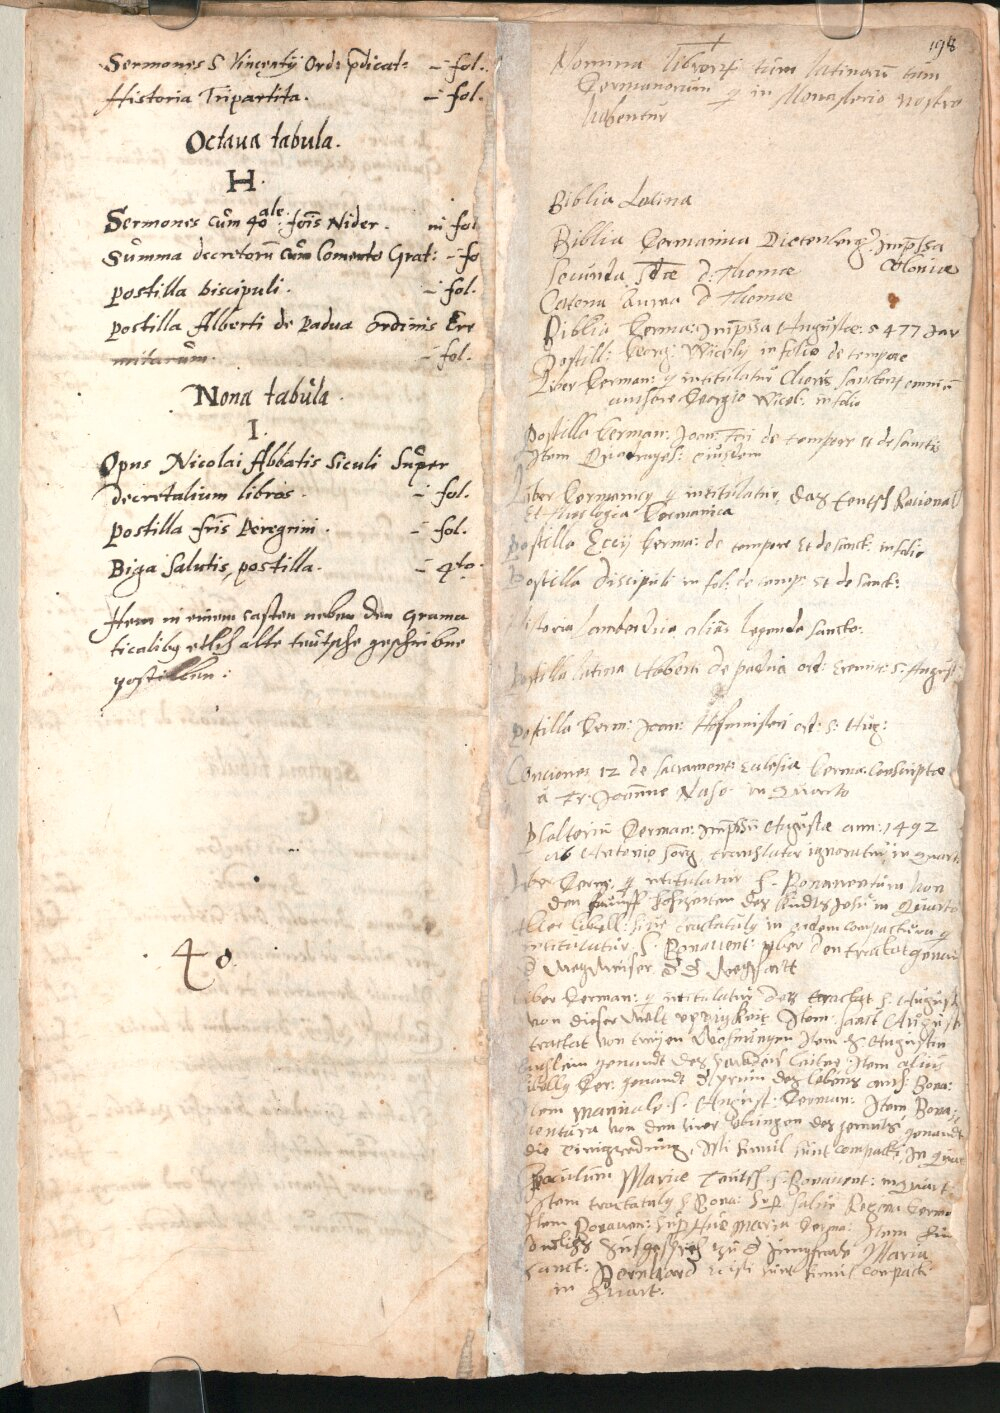 Sermones S Vincentij Ord: pdicat: – fol.
Historia Tripartita. – fol.
Octaua tabula.
H.
Sermones cum 40ale: Jois Nider. in fol
Summa decretorũ cum Comento Grat: – fo
Postilla Discipuli. – fol.
Postilla Alberti de Padua ordinis Ere
mitarum. – fol.
Nona tabula.
I.
Opus Nicolai Abbatis Siculi Super
decretalium libros. – fol.
Postilla fris Peregrini. – fol.
Biga Salutis, postilla. – 4to.
Item in einem casten neben den Grama
ticalibq etlich alte teutsche geschribne
postillen:
40
198
Nomina librorũ tum latinorũ tum
Germanorum q in Monasterio nostro
habentur
Biblia Latina
Biblia Germanica Dietenberg: Impssa
Coloniæ
Secunda Sdæ d: Thomæ
Catena Aurea d Thomæ
Biblia Germa: Impssa Augustæ: 477 Jar
Postill: Georg: Wicely in folio de tempore
Liber German: q intitulatur Chorus Sanctorũ omniũ
authore Georgio Wicel: in folio
Postilla German: Joan: Eci de tempore et de Sanctis
Item Quadrages: eiusdem
Liber Germanicq q intitulatur, das teutsch Rational
et theologia Germanica
Postilla Eccij Germa: de tempore et de Sanct: in folio
Postilla Discipuli in fol: de temp: et de Sanct:
Historia Lombardica alias Legenda Sancto:
Postilla latina Alberti de padua ord: Eremit: S. August:
Postilla Germ: Joan: Hofmeisteri ord: S: Aug:
Conciones 12 de Sacramentis Eclesiæ Germa: Conscriptæ
a Fr: Joanne Naso in Quarto
Psalteriũ German: Impssũ Augustæ ann: 1492
ab Antonio Sorg, translator ignoratur in Quart:
Liber Germ: q intitulatur S. Bonauentura von
den fünff Hochzeiten des Kindts Jesu in Quarto
libell: siue tractatulq in eadem compactura q
intitulatur S. Bonauent: yber den tractat genant
d Wegweiser
Liber German: q intitulatur des tractat S. August
von dieser Welt yppigkeit Item Sanct August
tractat von Item S. Augustin
genandt des Item alius
libellq Ger: genandt des lebens auth: Bona:
Item manuale S. August: German: Item Bona
uentura von den vier ybungen des gemuts, genandt
die Einigredung, Isti simul sunt compacti, In Quar
Speculum Mariæ Teutsch S. Bonauent: in Quart
Item tractatulq S Bona: sup Salue Regina Germa
Item Bonauen: sup Aue Maria Germa: Item
zu d Jungfrawe Maria
Sanct: Bernhard isti sunt simul compacti
in Quart: